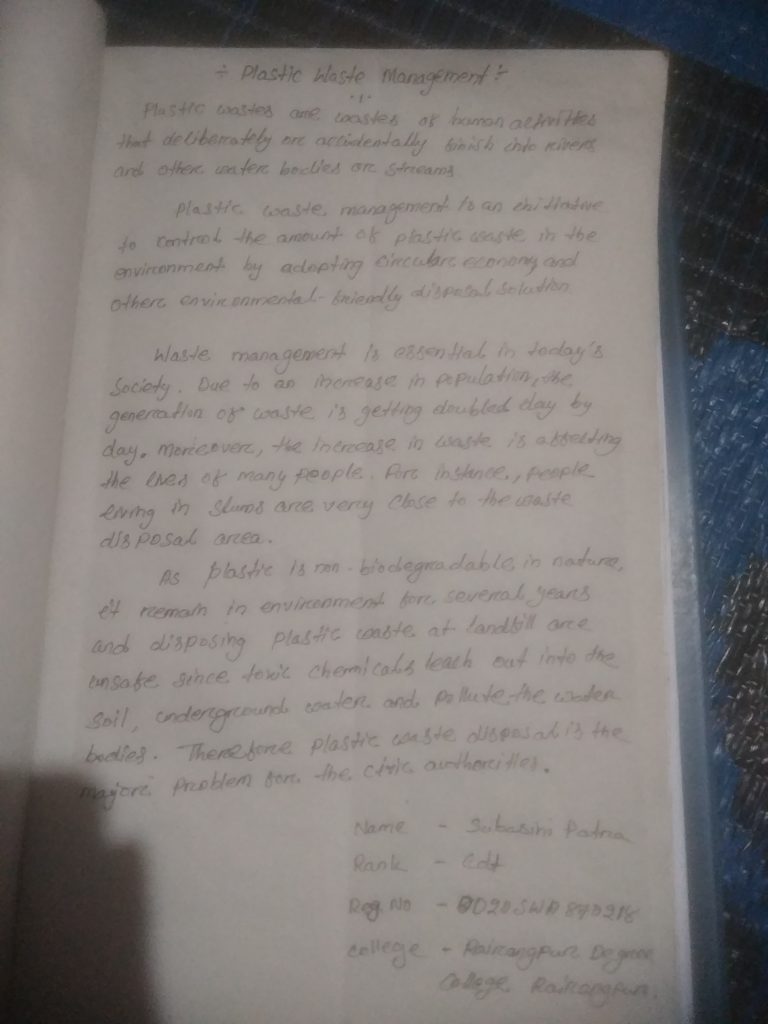 ÷ Plastic Waste Management ÷
Plastic wastes are wastes of human activities
that deliberately or accidentally finish into rivers
and other water bodies or streams.
Plastic waste management is an initiative
to control the amount of plastic waste in the
environment by adopting circular economy and
other environmental-friendly disposal solution.
Waste management is essential in today's
Society. Due to an increase in population, the
generation of waste is getting doubled day by
day. Moreover, the increase in waste is affecting
the lives of many people. For instance, people
living in slums are very close to the waste
disposal area.
As plastic is non-biodegradable in nature,
it remain in environment for several years
and disposing plastic waste at landfill are
unsafe since toxic chemicals leach out into the
soil, underground water and pollute the water
bodies. Therefore plastic waste disposal is the
major problem for the civic authorities.
Name - Subasini Patra
Rank - Cdt
Reg. No - OD20SWA870218
College - Rairangpur Degree
College Rairangpur.